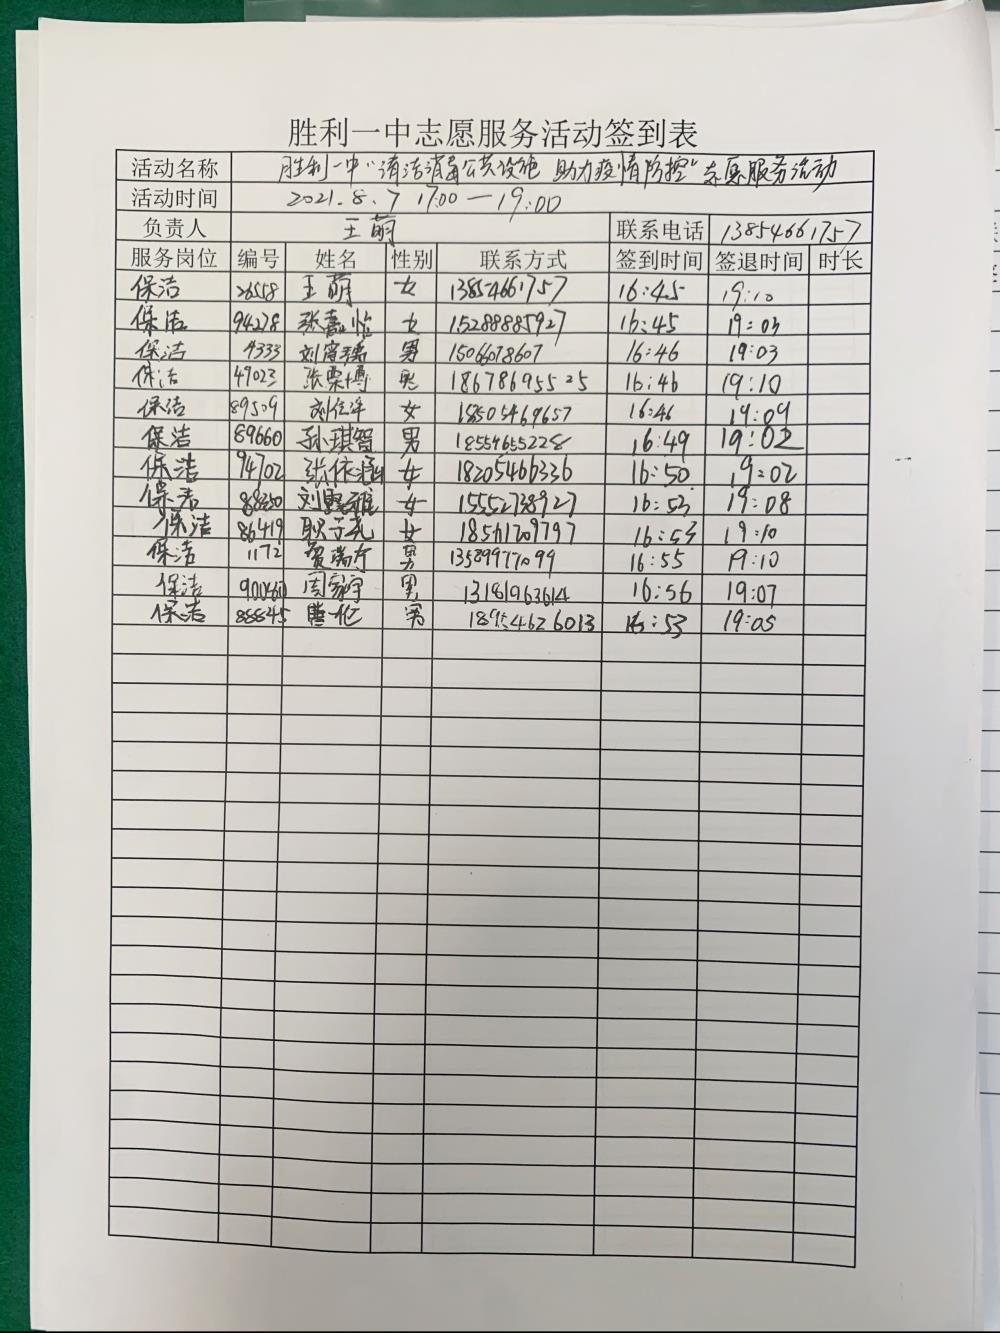 胜利一中志愿服务活动签到表
活动名称 胜利一中"清洁消毒公共设施 助力疫情防控"志愿服务活动
活动时间 2021.8.7 17:00—19:00
负责人 王萌 联系电话 13854661757
服务岗位 编号 姓名 性别 联系方式 签到时间 签退时间 时长
保洁 26558 王萌 女 13854661757 16:45 19:10
保洁 94278 张嘉怡 女 15288885927 16:45 19:03
保洁 4333 男 1506678607 16:46 19:03
保洁 49023 张栗博 男 18678695525 16:46 19:10
保洁 89509 女 18505469657 16:46 19:09
保洁 89660 孙琪智 男 18554655228 16:49 19:02
保洁 94702 张依涵 女 18205466336 16:50 19:02
保洁 女 15552738927 16:53 19:08
保洁 86419 女 18561209797 16:53 19:10
保洁 1172 贾瑞斤 男 13589977099 16:55 19:10
保洁 周家宇 男 13181963614 16:56 19:07
保洁 88845 男 18954626013 16:53 19:05